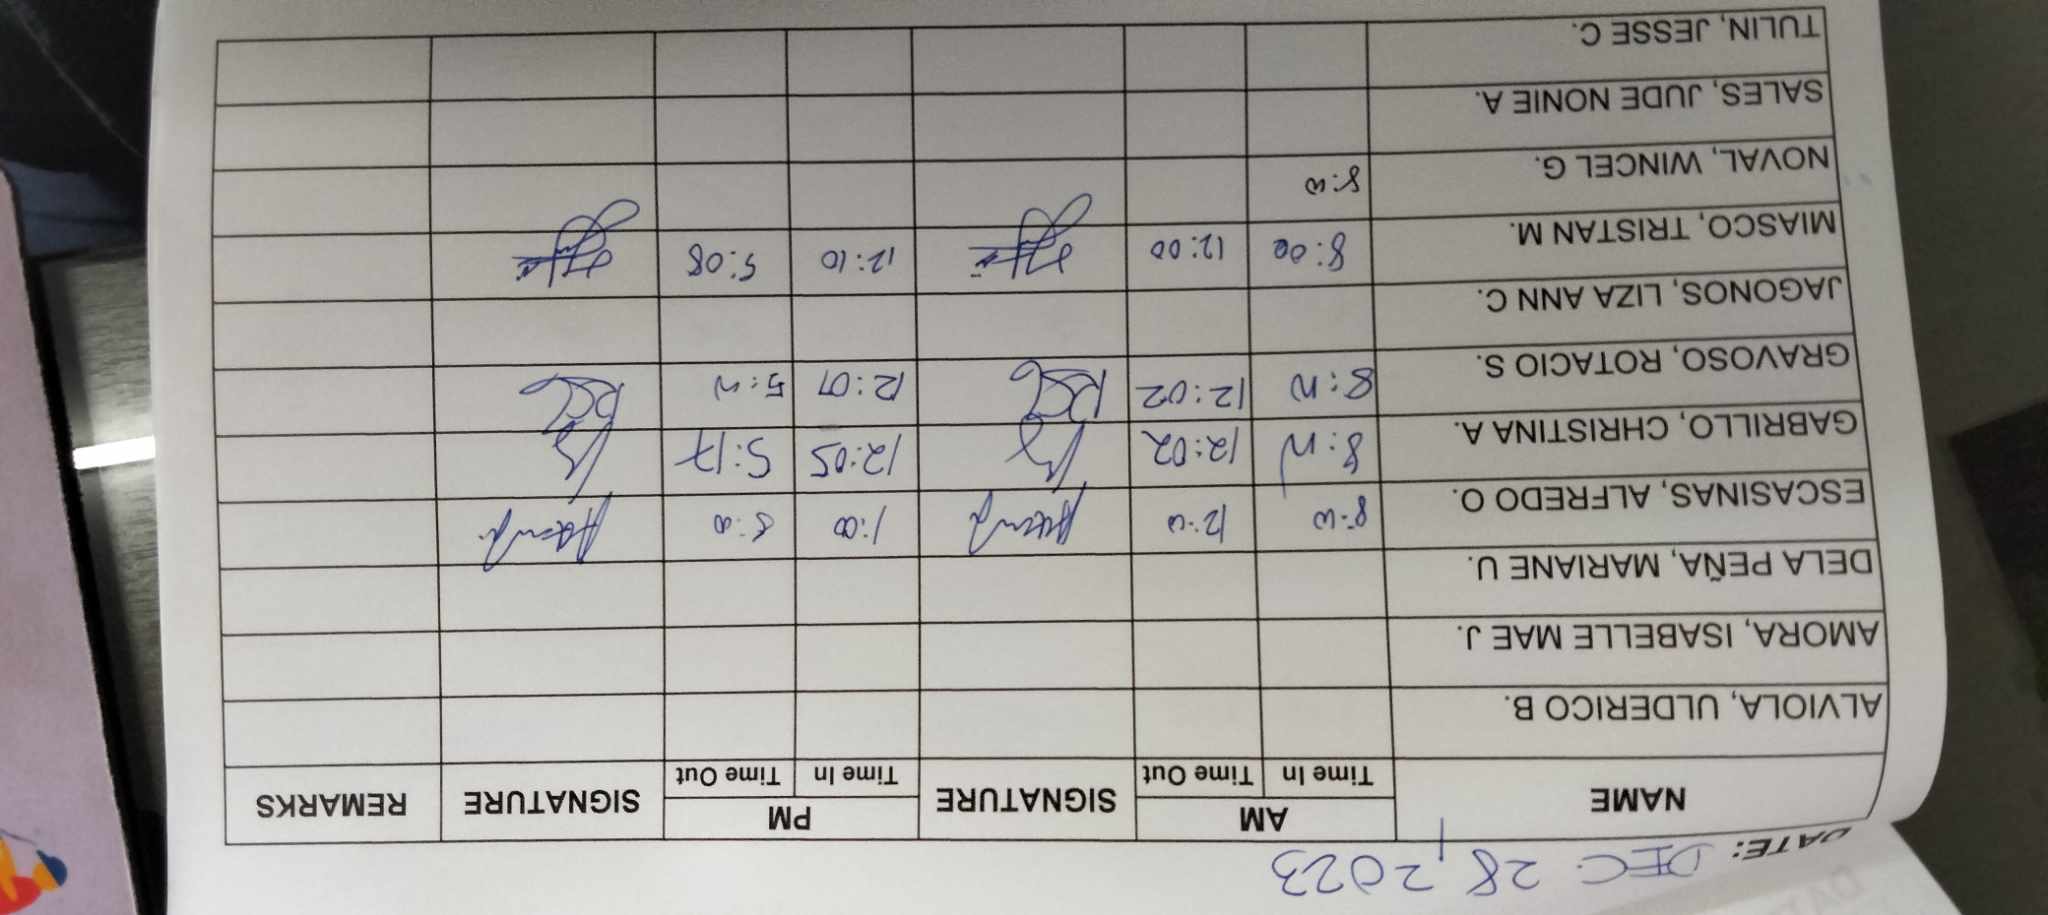 DATE: DEC. 28, 2023
NAME AM SIGNATURE PM SIGNATURE REMARKS
Time In Time Out Time In Time Out
ALVIOLA, ULDERICO B.
AMORA, ISABELLE MAE J.
DELA PEÑA, MARIANE U.
ESCASINAS, ALFREDO O. 8:00 12:00 1:00 5:00
GABRILLO, CHRISTINA A. 8:00 12:02 12:05 5:17
GRAVOSO, ROTACIO S. 8:00 12:02 12:07 5:00
JAGONOS, LIZA ANN C.
MIASCO, TRISTAN M. 8:00 12:00 12:10 5:08
NOVAL, WINCEL G. 8:00
SALES, JUDE NONIE A.
TULIN, JESSE C.